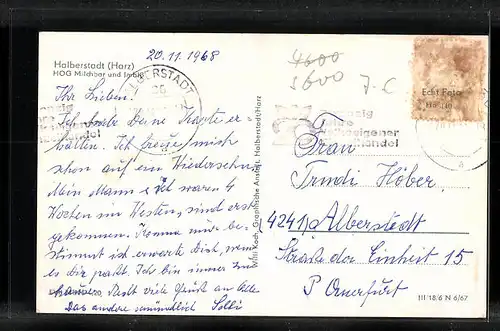 20.11.1968
Halberstadt (Harz)
HOG Milchbar und
Ihr Lieben.
Ich habe Deine Karte er-
halten. Ich freue mich
schon auf ein Wiedersehn.
Mein Mann & ich waren 4
Wochen im Westen, sind erst
gekommen. Komme nur be-
stimmt ich erwarte Dich, wenn
es dir paßt. Ich bin immer zu
hause. Seid viele Grüße an Alle
Das andere mündlich
HALBERSTADT
Willi Koch, Graphische Anstalt, Halberstadt/Harz
4600
5600
7.-C
Echt Foto
zwanzig
Jahre
volkseigener
Frau
Trudi Höber
4241 Alberstedt
Straße der Einheit 15
P Querfurt
III 18/6 N 6/67